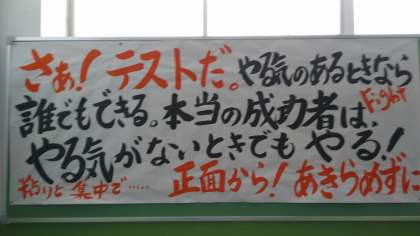 さぁ!テストだ。やる気のあるときなら
誰でもできる。本当の成功者は、
Fight
やる気がないときでもやる!
粘りと集中で……正面から!あきらめずに